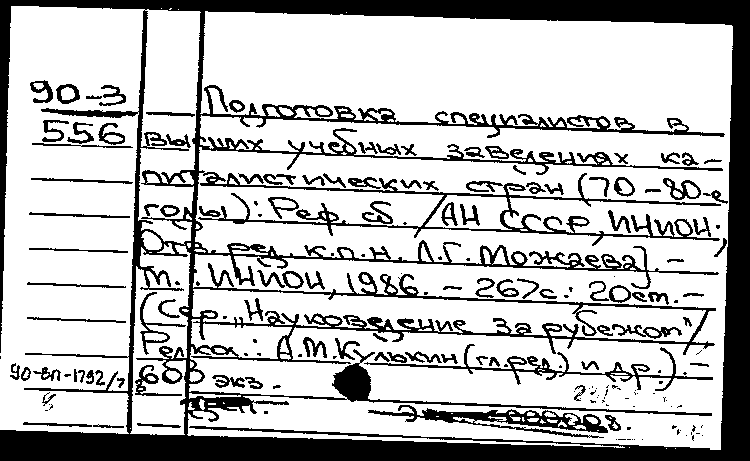 90-3
556
Подготовка специалистов в
высших учебных заведениях ка-
питалистических стран (70-80-е
годы): Реф. сб. / АН СССР, ИНИОН;
[Отв. ред. к.п.н. Л.Г. Можаева]. -
М.: ИНИОН, 1986. - 267с.; 20см. -
(Сер. „Науковедение за рубежом"/
Редкол.: А.М. Кулькин (гл.ред.) и др.). -
603 экз.
90-ВП-1792/7
8